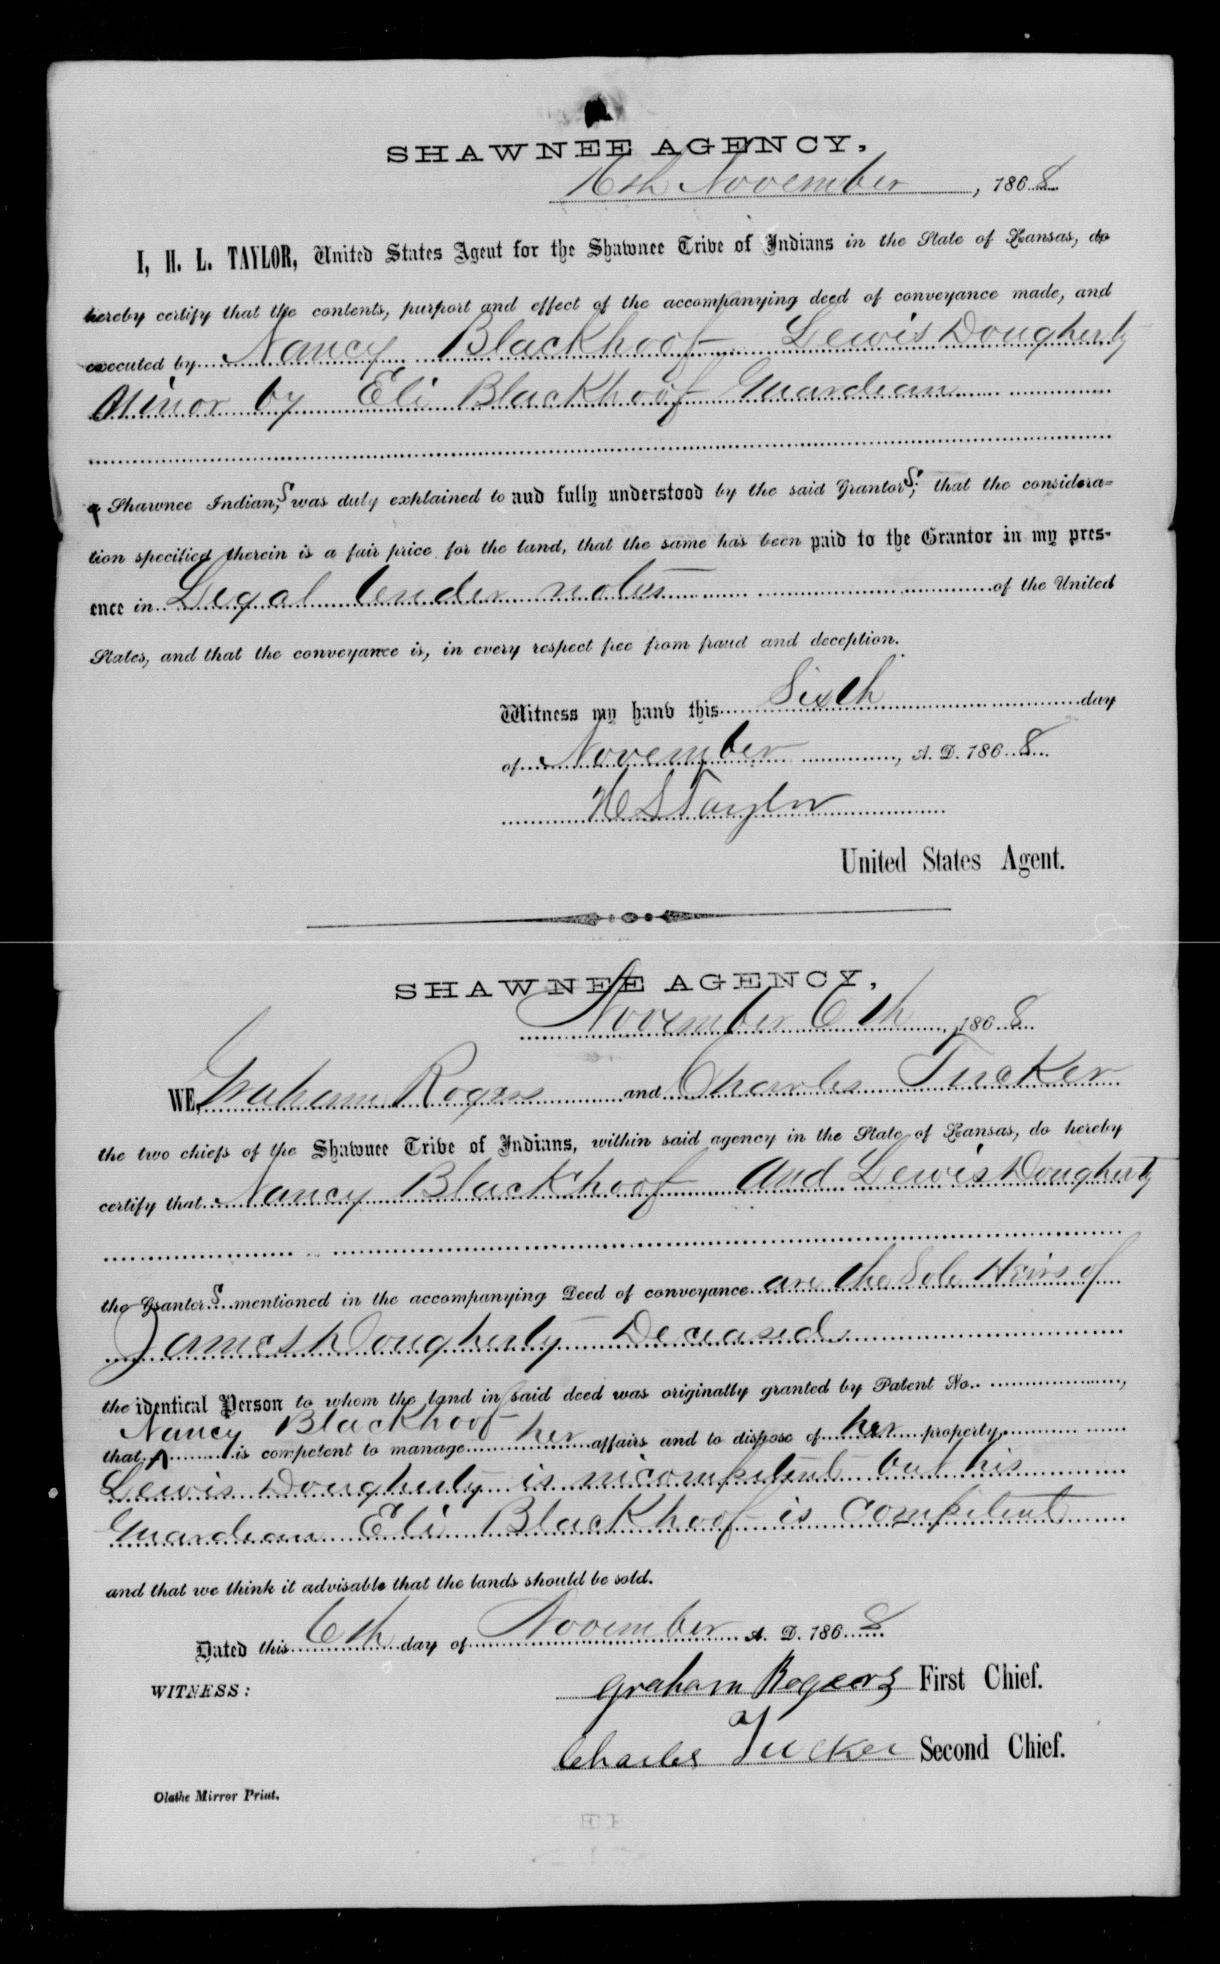 SHAWNEE AGENCY,
6th November, 1868
I, H. L. TAYLOR, United States Agent for the Shawnee Tribe of Indians in the State of Kansas, do
hereby certify that the contents, purport and effect of the accompanying deed of conveyance made, and
executed by Nancy Blackhoof Lewis Dougherty
Minor by Eli Blackhoof Guardian
a Shawnee Indian,s was duly explained to and fully understood by the said Grantors; that the considera-
tion specified therein is a fair price for the land, that the same has been paid to the Grantor in my pres-
ence in Legal tender notes of the United
States, and that the conveyance is, in every respect free from fraud and deception.
Witness my hand this Sixth day
of November, A. D. 1868
H L Taylor
United States Agent.
SHAWNEE AGENCY,
November 6th, 1868
WE, Graham Rogers and Charles Tucker
the two chiefs of the Shawnee Tribe of Indians, within said agency in the State of Kansas, do hereby
certify that Nancy Blackhoof and Lewis Dougherty
the Grantors mentioned in the accompanying Deed of conveyance are the Sole Heirs of
James Dougherty Deceased
the identical Person to whom the land in said deed was originally granted by Patent No. ,
Nancy Blackhoof
that is competent to manage her affairs and to dispose of her property,
Lewis Dougherty is incompetent but his
Guardian Eli Blackhoof is competent
and that we think it advisable that the lands should be sold.
Dated this 6th day of November A. D. 1868
WITNESS:
Graham Rogers First Chief.
Charles Tucker Second Chief.
Olathe Mirror Print.